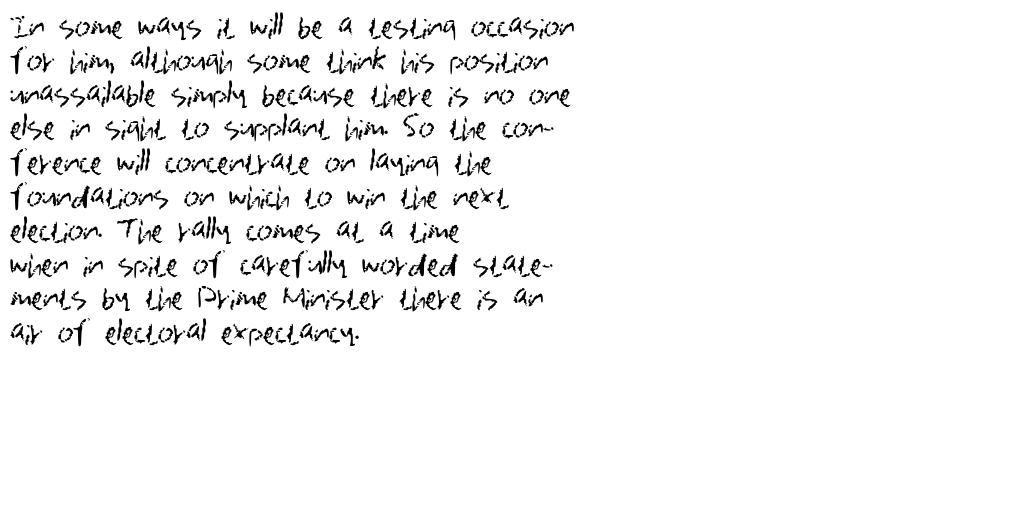 In some ways it will be a testing occasion
for him, although some think his position
unassailable simply because there is no one
else in sight to supplant him. So the con-
ference will concentrate on laying the
foundations on which to win the next
election. The rally comes at a time
when in spite of carefully worded state-
ments by the Prime Minister there is an
air of electoral expectancy.